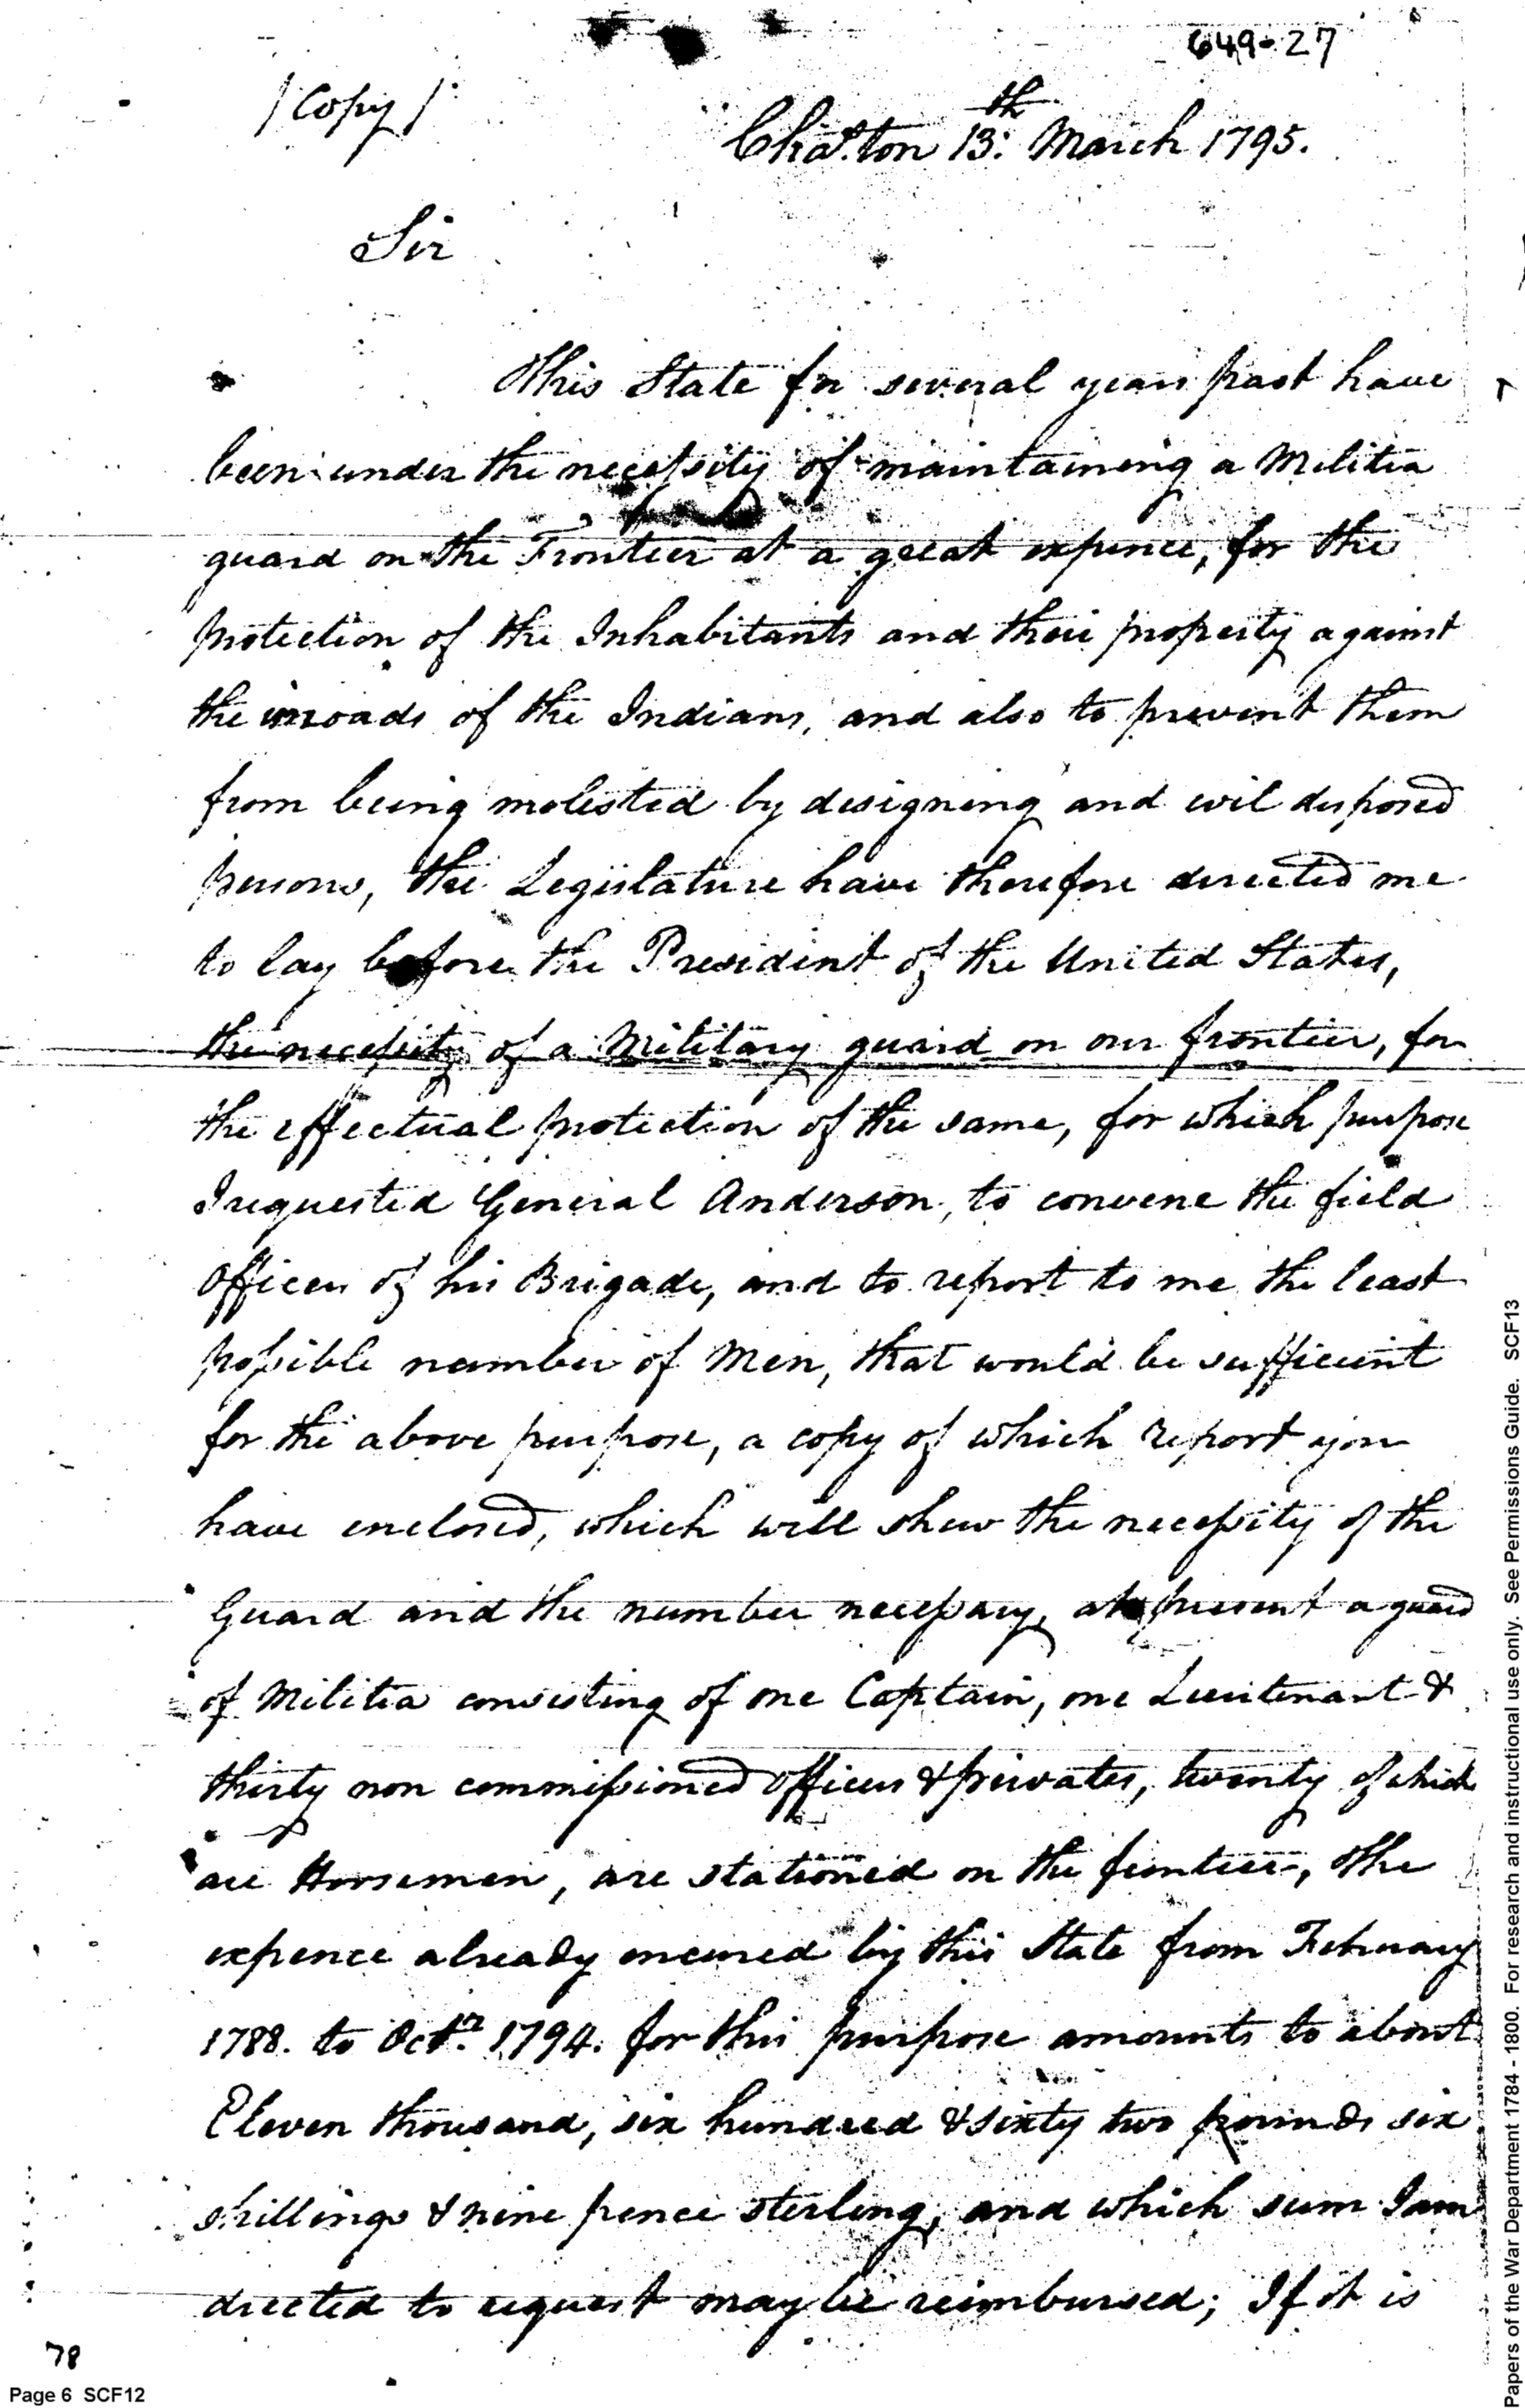 649-27
/Copy/
Chās.ton 13.th March 1795.
Sir
This State for several years past have
been under the necessity of maintaining a Militia
guard on the Frontier at a great expence, for the
protection of the Inhabitants and their property against
the inroads of the Indians, and also to prevent them
from being molested by designing and evil disposed
persons, the Legislature have therefore directed me
to lay before the President of the United States,
the necessity of a Military guard on our frontier, for
the effectual protection of the same, for which purpose
I requested General Anderson, to convene the field
Officers of his Brigade, and to report to me the least
possible number of Men, that would be sufficient
for the above purpose, a copy of which report you
have enclosed, which will shew the necessity of the
Guard and the number necessary, at present a guard
of Militia consisting of one Captain, one Lieutenant &
thirty non commissioned officers & privates, twenty of which
are Horsemen, are stationed on the frontier, the
expence already incured by this State from February
1788. to Octr. 1794. for this purpose amounts to about
Eleven thousand, six hundred & sixty two pounds six
shillings & nine pence sterling, and which sum I am
directed to request may be reimbursed; If it is
78
Page 6 SCF12
Papers of the War Department 1784 - 1800. For research and instructional use only. See Permissions Guide. SCF13